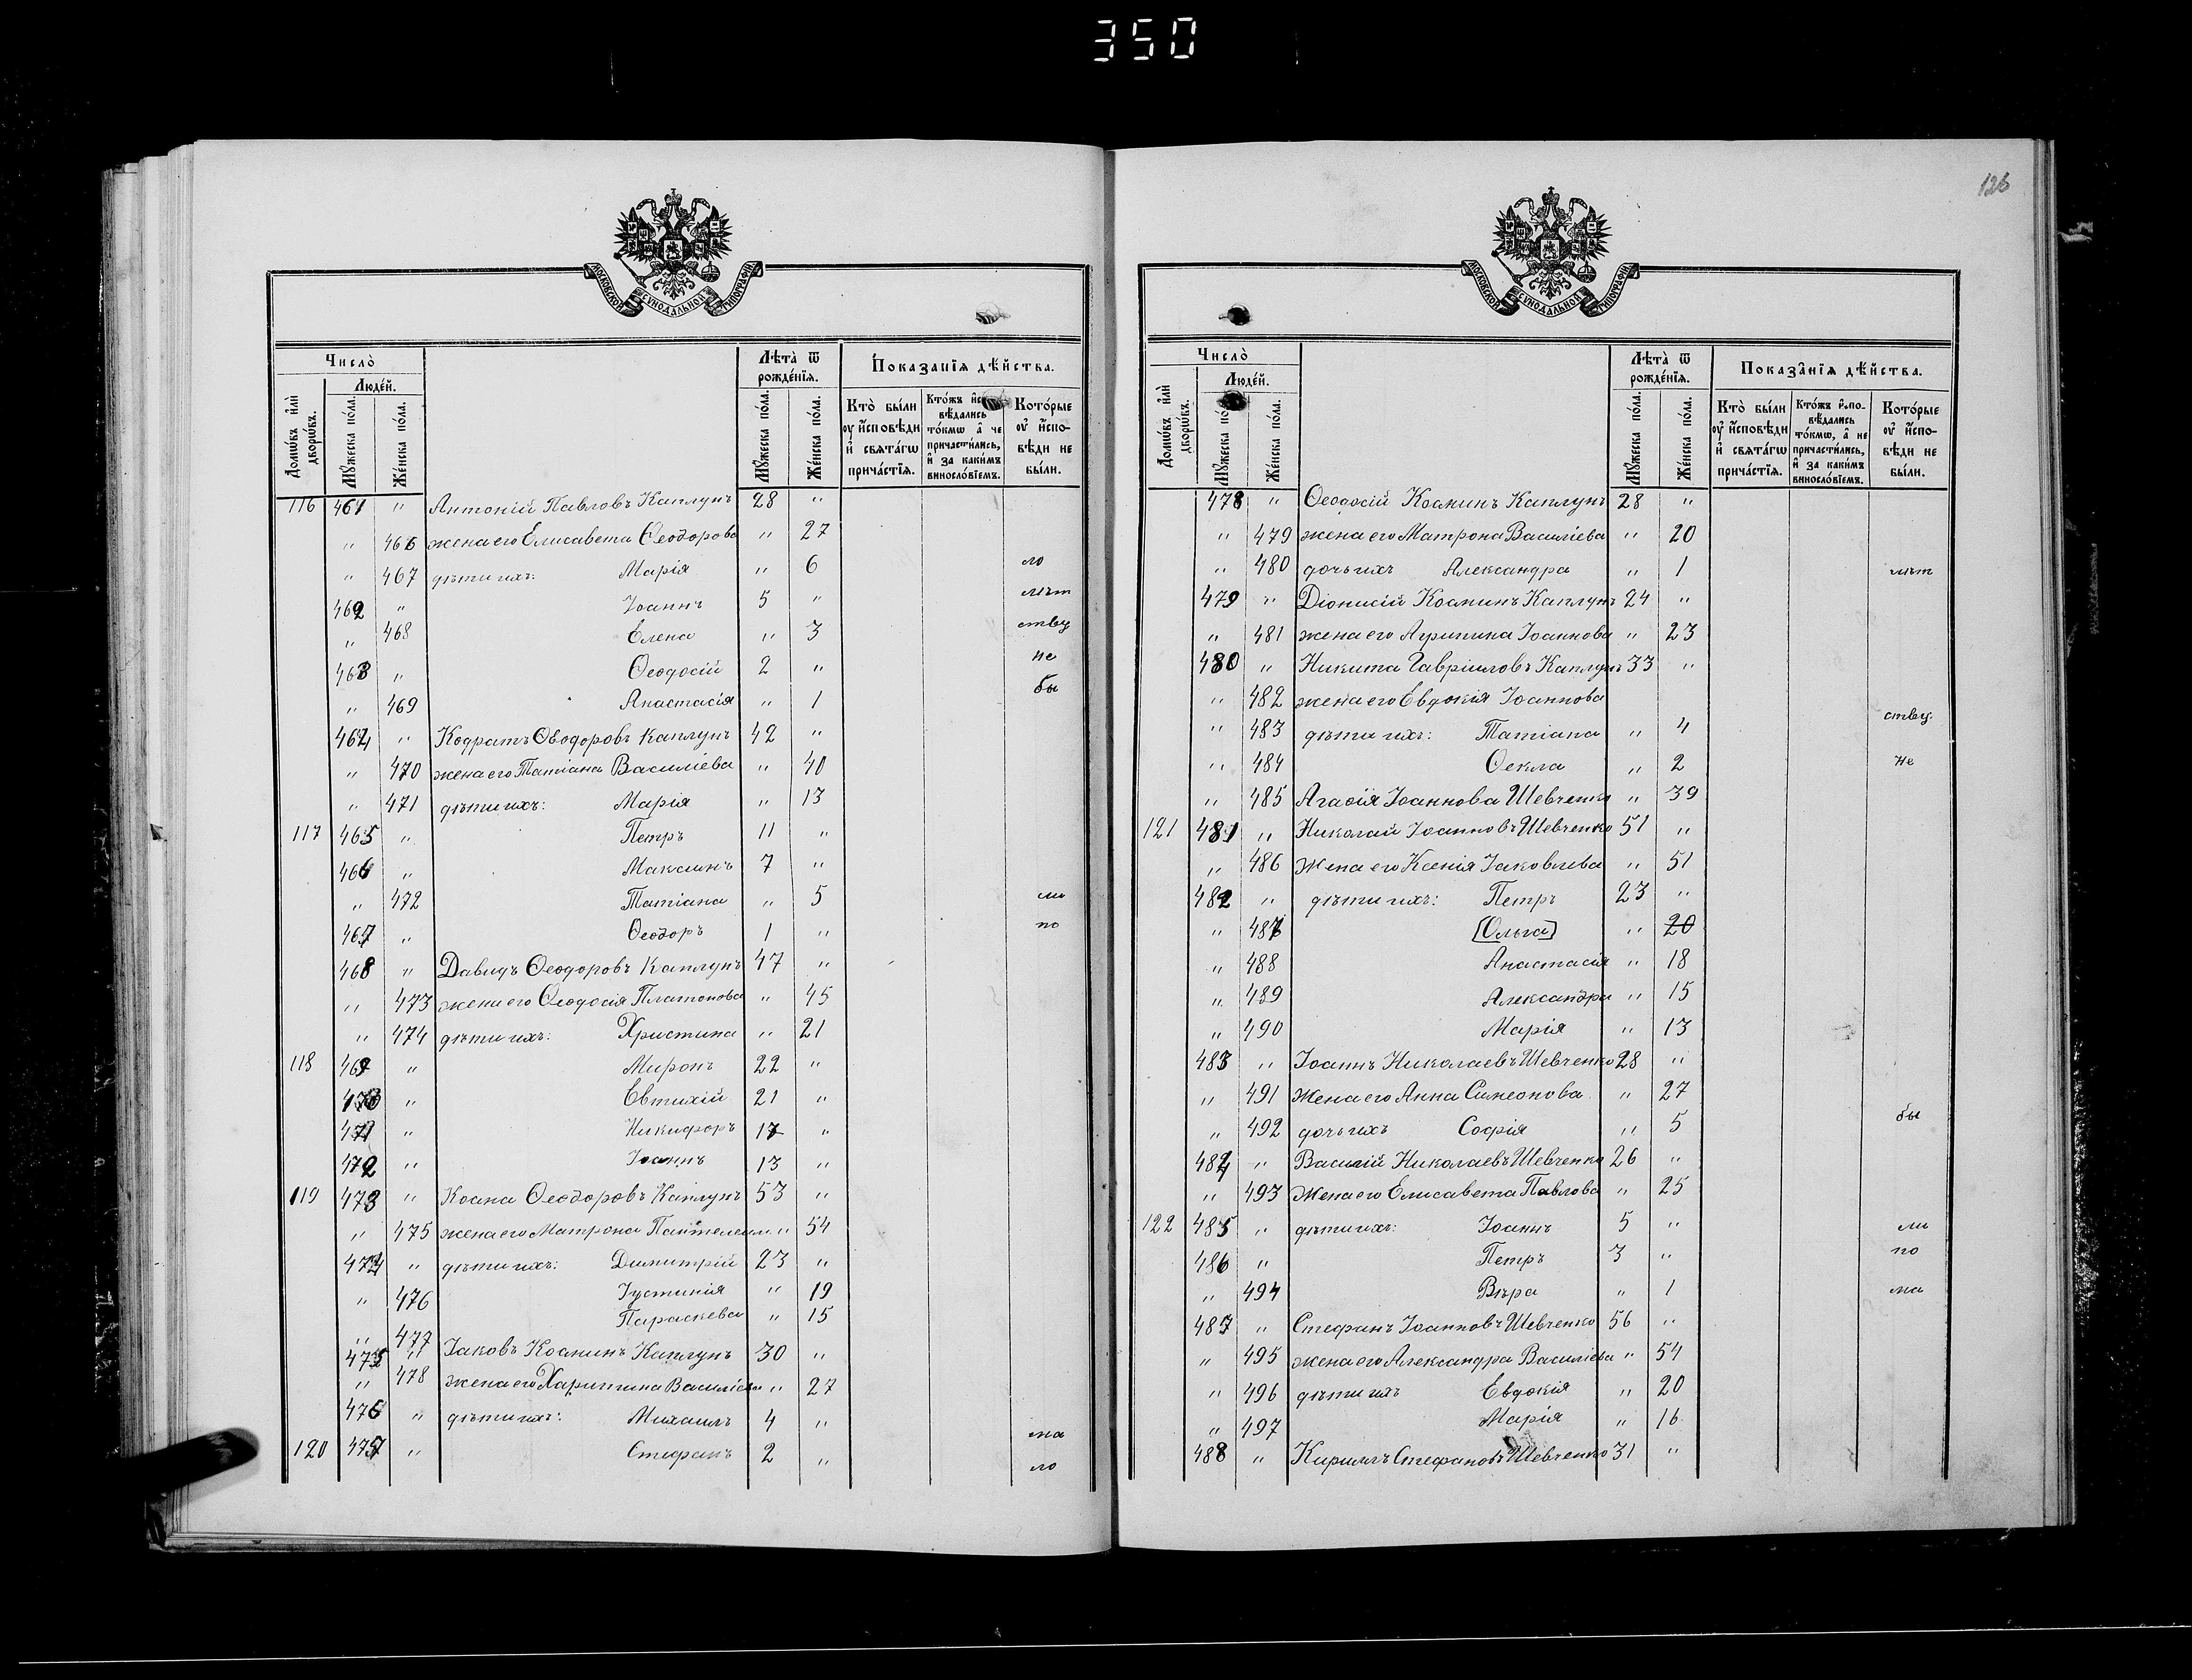 350
126
МОСКОВСКОЙ СѴНОДАЛЬНОЙ ТИПОГРАФІИ
Число̀
Домѡвъ и҆лѝ дворѡвъ.
Люде́й.
Мꙋ́жеска по́ла.
Же́нска по́ла.
Лѣ́та ѿ рожде́нїѧ.
Мꙋ́жеска по́ла.
Же́нска по́ла.
Показа́нїѧ дѣ́йства.
Кто̀ бы́ли ᲂу҆ и҆́сповѣди и҆ свѧта́гѡ прича́стїѧ.
Кто́жъ и҆сповѣ́дались то́кмѡ а҆ не причасти́лись, и҆ за каки́мъ виносло́вїемъ.
Кото́рые ᲂу҆ и҆́сповѣди не бы́ли.
116 461 " Антоній Павловъ Каплунъ 28 "
" 466 жена его Елисавета Ѳеодорова " 27
" 467 дѣти ихъ: Марія " 6 ло
462 " Іоаннъ 5 " лѣт
" 468 Елена " 3 ству
463 " Ѳеодосій 2 " не
" 469 Анастасія " 1 бы
464 " Кодратъ Ѳеодоровъ Каплунъ 42 "
" 470 жена его Татіана Василіева " 40
" 471 дѣти ихъ: Марія " 13
117 465 " Петръ 11 "
466 " Максимъ 7 "
" 472 Татіана " 5 ли
467 " Ѳеодоръ 1 " по
468 " Давидъ Ѳеодоровъ Каплунъ 47 "
" 473 жена его Ѳеодосія Платонова " 45
" 474 дѣти ихъ: Христина " 21
118 469 " Миронъ 22 "
470 " Евтихій 21 "
471 " Никифоръ 17 "
472 " Іоаннъ 13 "
119 473 " Коана Ѳеодоровъ Каплунъ 53 "
" 475 жена его Матрона Пантелеим. " 54
474 " дѣти ихъ: Димитрій 23 "
" 476 Іустинія " 19
" 477 Параскева " 15
475 " Іаковъ Коанинъ Каплунъ 30 "
" 478 жена его Харитина Василіева " 27
476 " дѣти ихъ: Михаилъ 4 " ма
120 477 " Стефанъ 2 " ло
МОСКОВСКОЙ СѴНОДАЛЬНОЙ ТИПОГРАФІИ
Число̀
Домѡвъ и҆лѝ дворѡвъ.
Люде́й.
Мꙋ́жеска по́ла.
Же́нска по́ла.
Лѣ́та ѿ рожде́нїѧ.
Мꙋ́жеска по́ла.
Же́нска по́ла.
Показа́нїѧ дѣ́йства.
Кто̀ бы́ли ᲂу҆ и҆́сповѣди и҆ свѧта́гѡ прича́стїѧ.
Кто́жъ и҆сповѣ́дались то́кмѡ, а҆ не причасти́лись, и҆ за каки́мъ виносло́вїемъ.
Кото́рые ᲂу҆ и҆́сповѣди не бы́ли.
478 " Ѳеодосій Коанинъ Каплунъ 28 "
" 479 жена его Матрона Василіева " 20
" 480 дочь ихъ Александра " 1 лѣт
479 " Діонисій Коанинъ Каплунъ 24 "
" 481 жена его Агрипина Іоаннова " 23
480 " Никита Гавріиловъ Каплунъ 33 "
" 482 жена его Евдокія Іоаннова
" 483 дѣти ихъ: Татіана " 4 ству.
" 484 Ѳекла " 2 не
" 485 Агаѳія Іоаннова Шевченко " 39
121 481 " Николай Іоанновъ Шевченко 51 "
" 486 Жена его Ксенія Іаковлева " 51
482 " дѣти ихъ: Петръ 23 "
" 487 [Ольга] " 20
" 488 Анастасія " 18
" 489 Александра " 15
" 490 Марія " 13
483 " Іоаннъ Николаевъ Шевченко 28 "
" 491 Жена его Анна Симеонова " 27
" 492 дочь ихъ Софія " 5 бы
484 " Василій Николаевъ Шевченко 26 "
" 493 Жена его Елисавета Павлова " 25
122 485 " дѣти ихъ: Іоаннъ 5 " ли
486 " Петръ 3 " по
" 494 Вѣра " 1 ма
487 " Стефанъ Іоанновъ Шевченко 56 "
" 495 жена его Александра Василіева " 54
" 496 дѣти ихъ Евдокія " 20
" 497 Марія " 16
488 " Кириллъ Стефановъ Шевченко 31 "